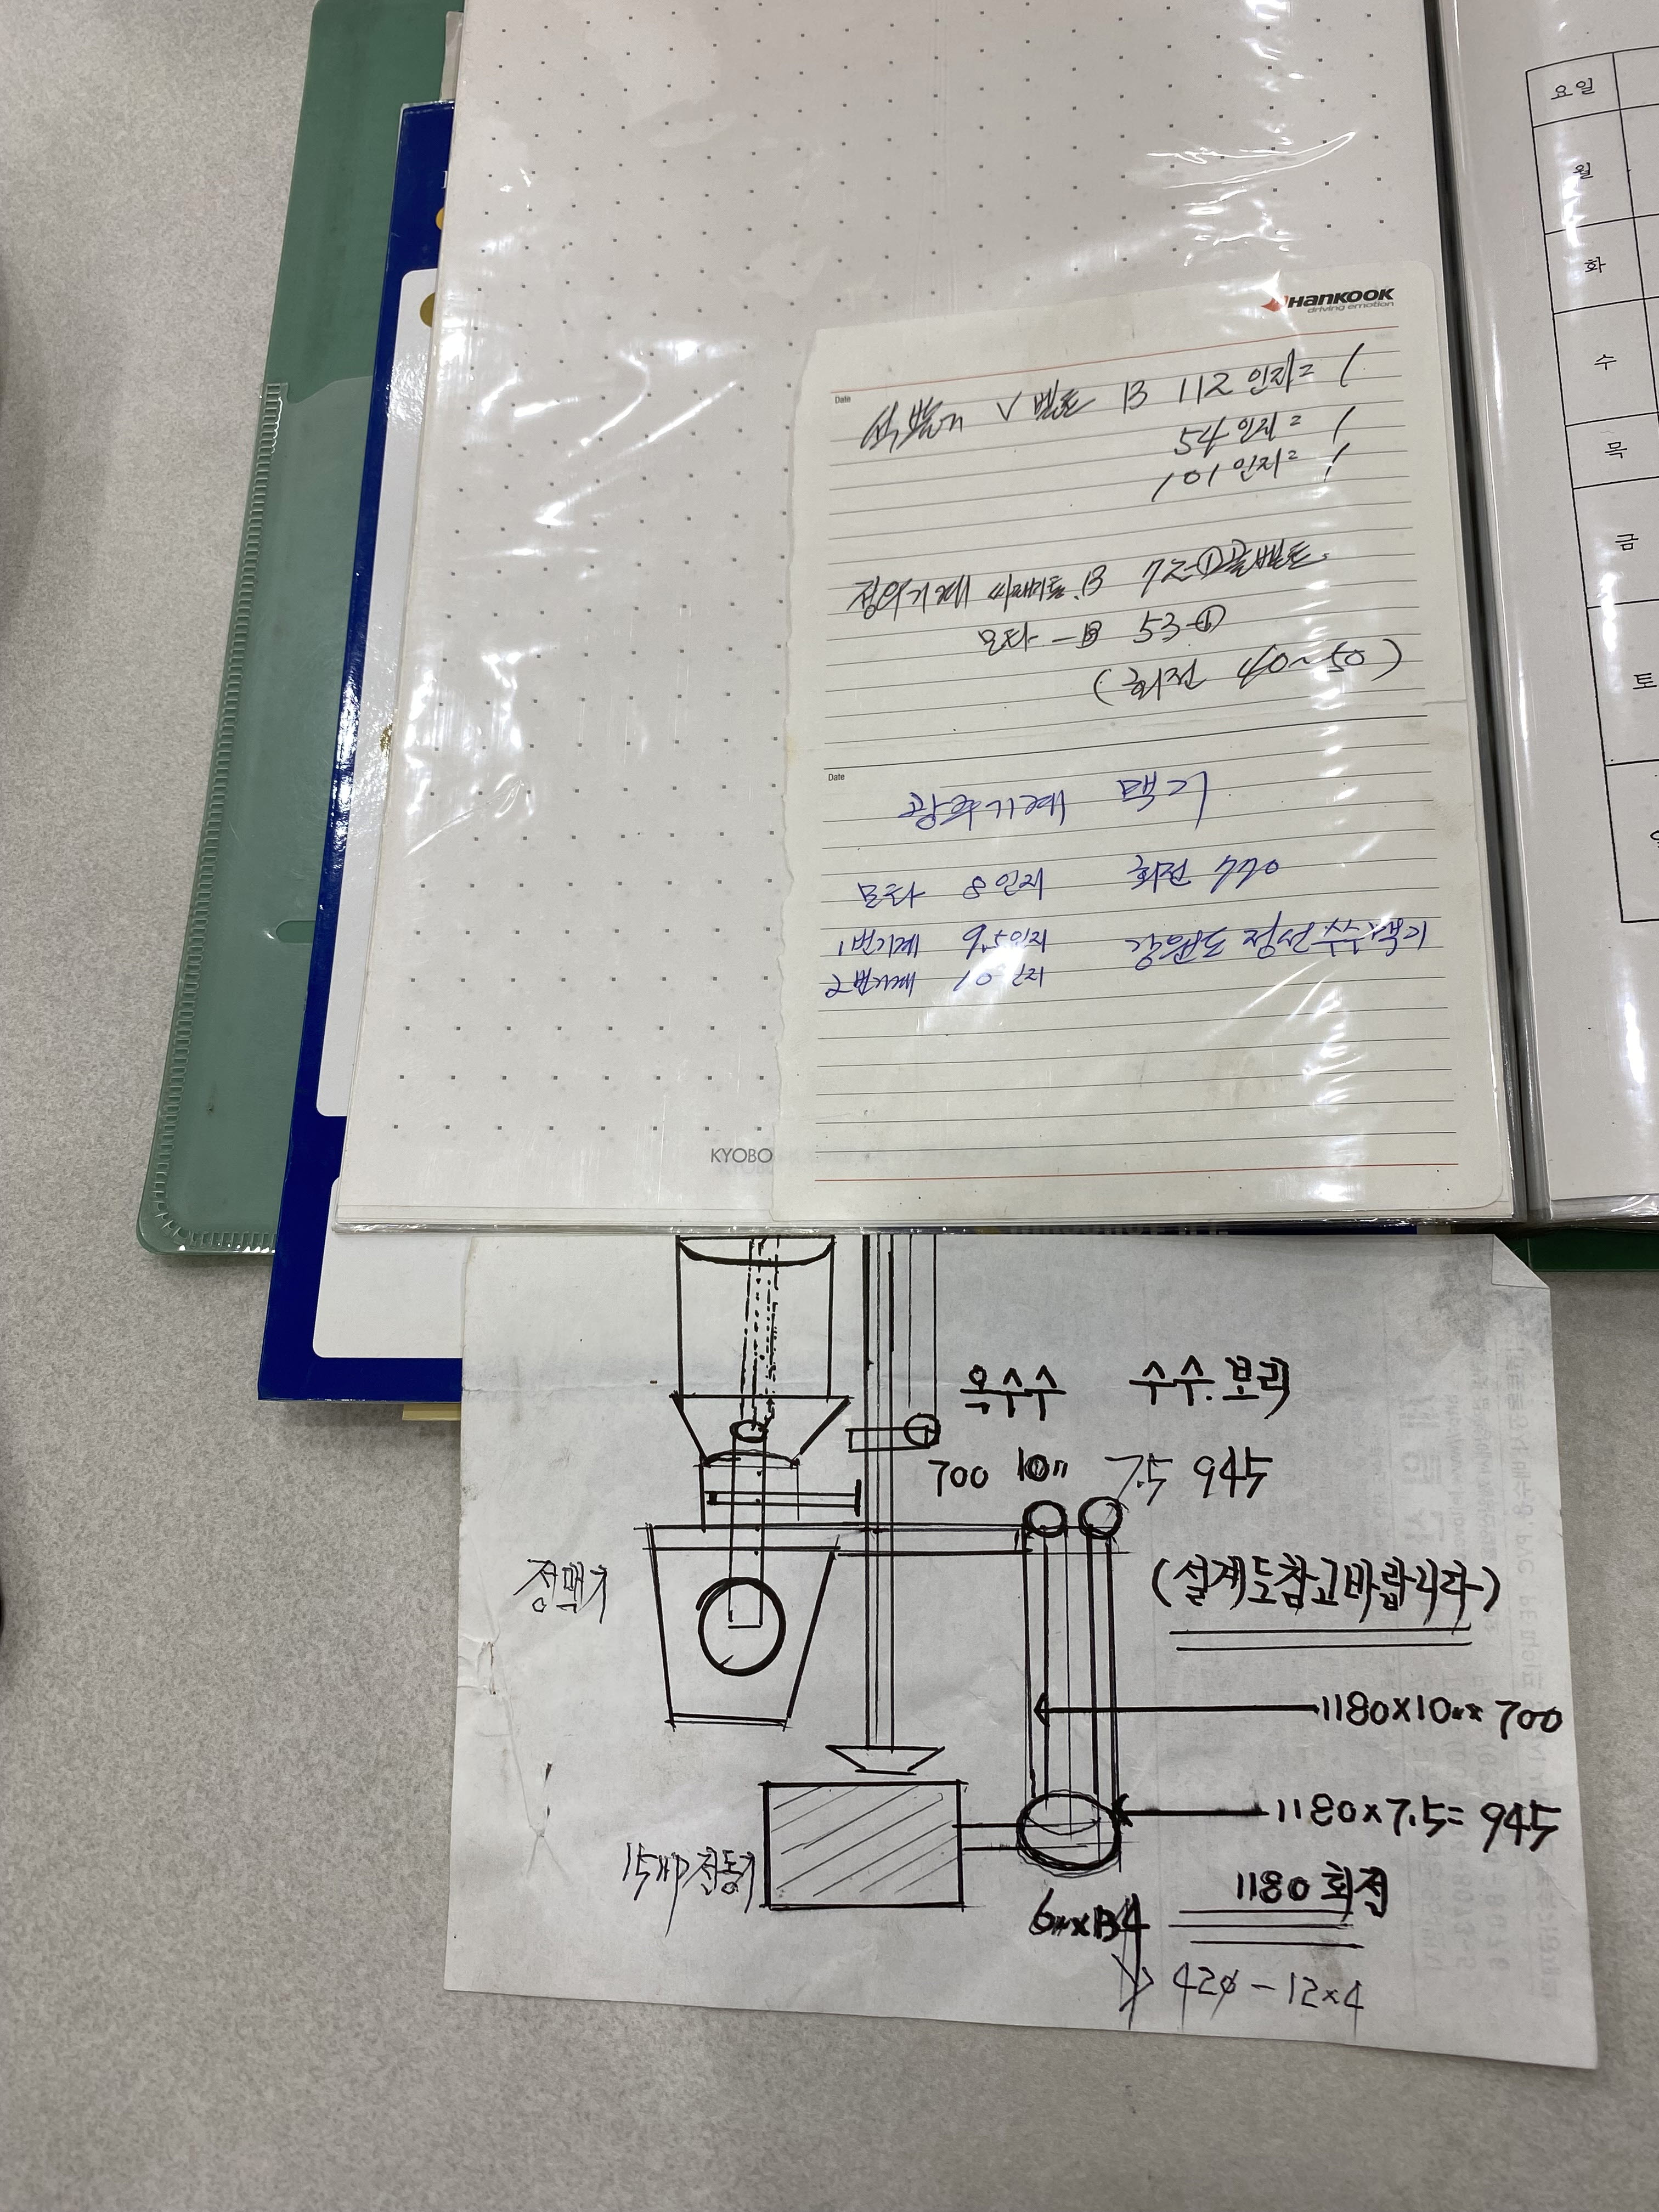 요일
월
화
수
목
금
토
HANKOOK
driving emotion
Date
V 벨트 B 112 인지= 1
54 인지= 1
101 인지= 1
정의기계 B 72-①골벨트
모타 - B 53-①
(회전 40~50)
Date
광주기계 맥기
모타 8인지 회전 770
1번기계 9.5인지 강원도 정선 수수맥기
2번기계 10인지
KYOBO
옥수수 수수.보리
700 10" 7.5 945
정맥기
(설계도참고바랍니다)
1180x10"= 700
1180x7.5= 945
15HP 전동기
1180 회전
6"xB4
420-12x4